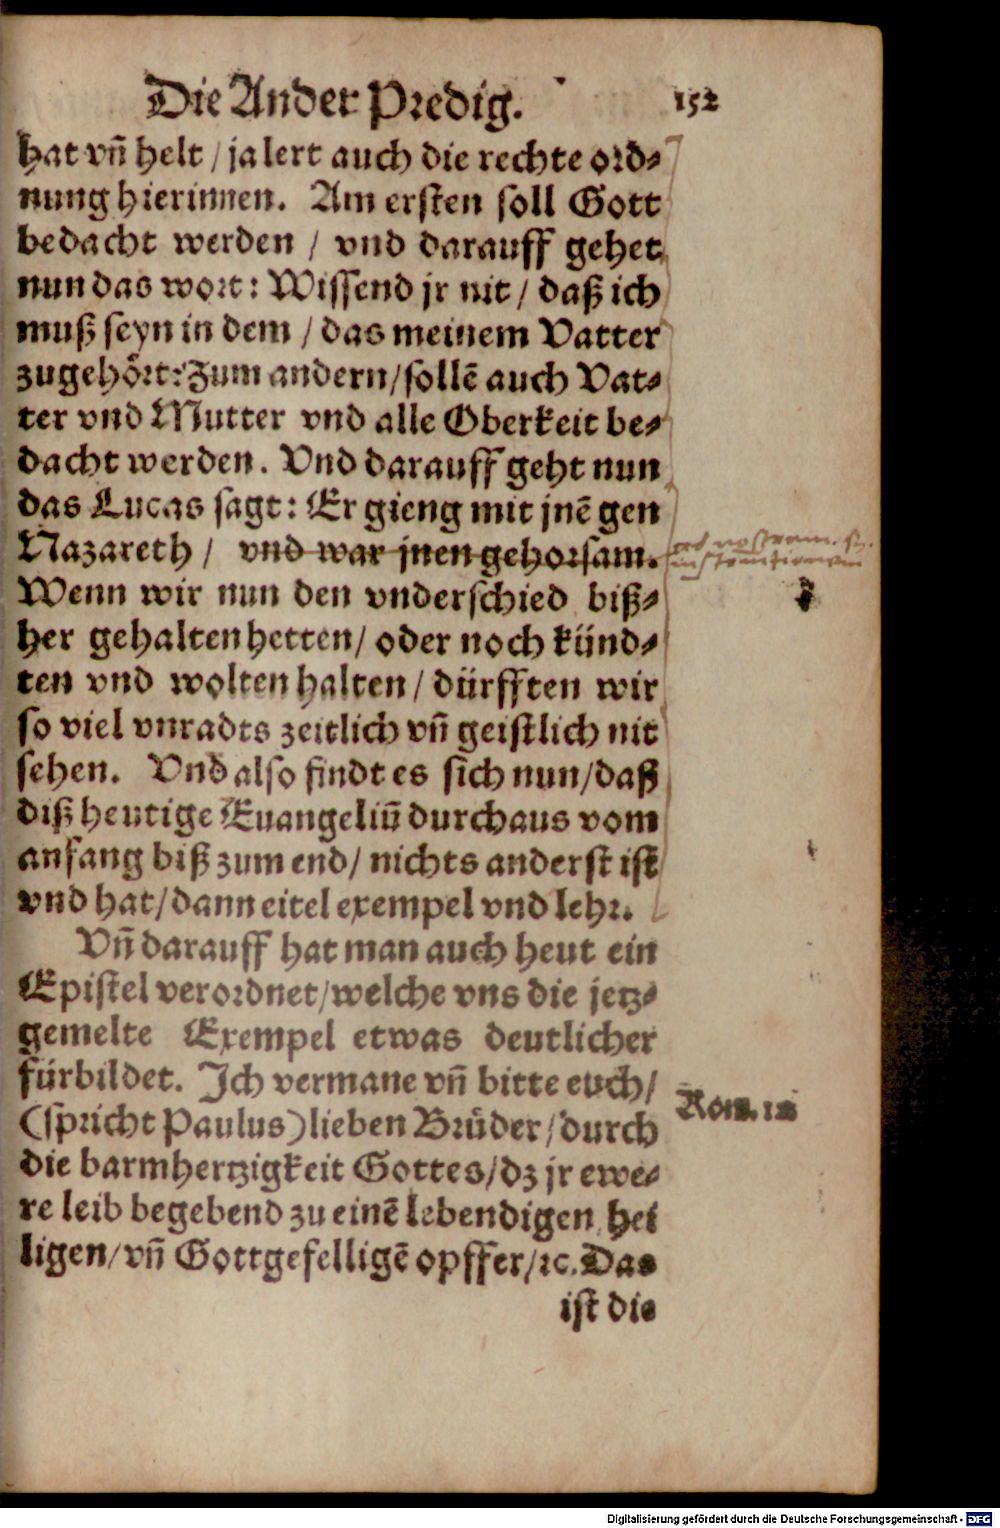 Die Ander Predig. 152
hat vñ helt / ja lert auch die rechte ord⸗
nung hierinnen. Am ersten soll Gott
bedacht werden / vnd darauff gehet
nun das wort: Wissend jr nit / daß ich
muß seyn in dem / das meinem Vatter
zugehört: Zum andern / sollē auch Vat⸗
ter vnd Mutter vnd alle Oberkeit be⸗
dacht werden. Vnd darauff geht nun
das Lucas sagt: Er gieng mit jnē gen
Nazareth / vnd war jnen gehorsam.
Wenn wir nun den vnderschied biß⸗
her gehalten hetten / oder noch künd⸗
ten vnd wolten halten / dürfften wir
so viel vnradts zeitlich vñ geistlich nit
sehen. Vnd also findt es sich nun / daß
diß heutige Euangeliū durchaus vom
anfang biß zum end / nichts anderst ist
vnd hat / dann eitel exempel vnd lehr.
Vñ darauff hat man auch heut ein
Epistel verordnet / welche vns die jetz⸗
gemelte Exempel etwas deutlicher
fürbildet. Ich vermane vñ bitte euch /
(spricht Paulus) lieben Brüder / durch
die barmhertzigkeit Gottes / dz jr ewe⸗
re leib begebend zu einē lebendigen hei
ligen / vñ Gottgefelligē opffer / ꝛc. Das
ist die
ad nostram
instructionem
Rom. 12
Digitalisierung gefördert durch die Deutsche Forschungsgemeinschaft - DFG